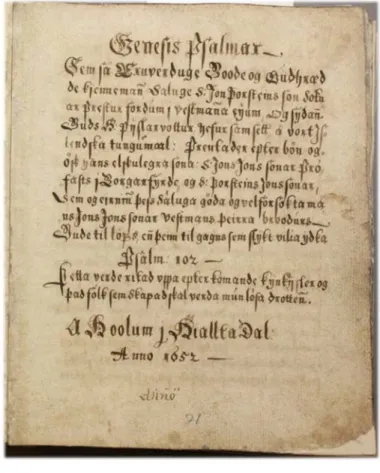 Genesis Psalmar
Sem sa Eruverduge Goode og Gudhræd
de kiennemañ Saluge S. Jon Þorsteins son Soku
ar Prestur fordum j vestmaña eyum, Og sydan
Guds H Pyslarvottur hefur samsett a vort Js
lendska tungumaal: Prentader epter bön og
osk hans elskulegra sona: S. Jons Jons sonar Pro
fasts j Borgarfyrde og S: Þorsteins Jons sonar,
Sem og eirnin þess Saluga göda og vel forsökta ma
ns Jons Jons sonar Vestmans þeirra broodurs
Gude til loofs, eñ þeim til gagns sem slykt vilia ydka
Psalm: 102
Þetta verde skrifad uppa epter komande kynkysler og
þad folk sem skapad skal verda mun lofa drotten.
A Hoolum j Hiallta Dal:
Anno 1652
Anno
21